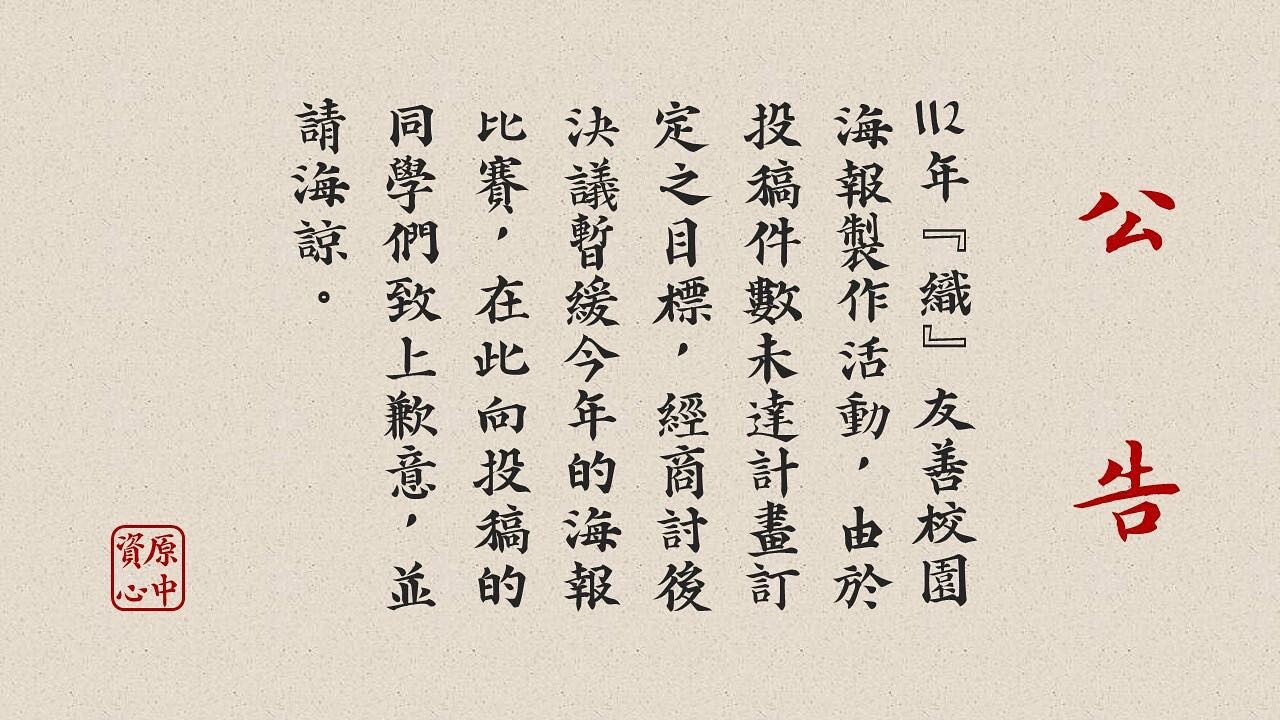 公告
112年『織』友善校園
海報製作活動，由於
投稿件數未達計畫訂
定之目標，經商討後
決議暫緩今年的海報
比賽，在此向投稿的
同學們致上歉意，並
請海諒。
原中
資心